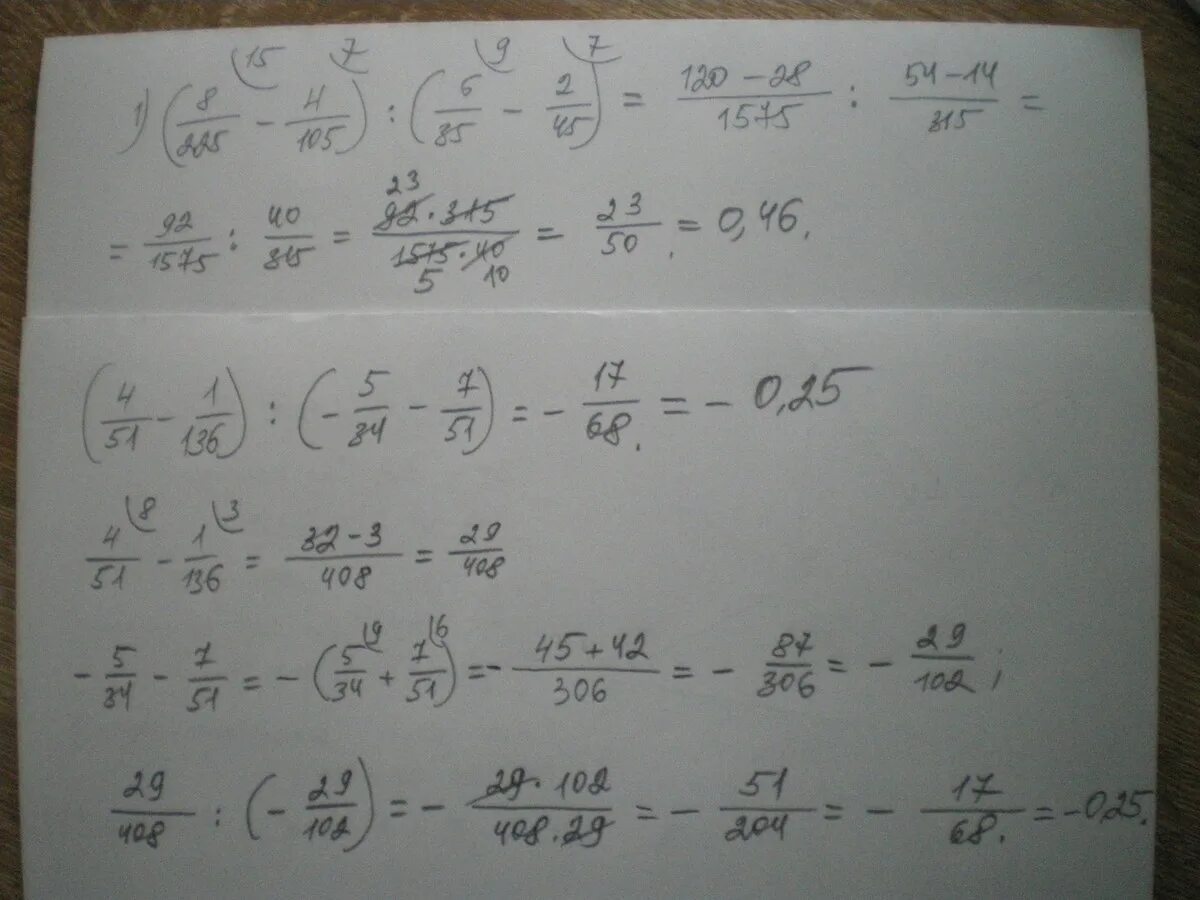 15 7 9 7
1) (8/225 - 4/105) : (6/35 - 2/45) = 120-28/1575 : 54-14/315 =
= 92/1575 : 40/315 = 92·315/1575·40 = 23/50 = 0,46.
23
5 10
(4/51 - 1/136) : (-5/34 - 7/51) = -17/68. = -0,25
8 3
4/51 - 1/136 = 32-3/408 = 29/408
9 6
-5/34 - 7/51 = -(5/34 + 7/51) = -45+42/306 = -87/306 = -29/102;
29/408 : (-29/102) = -29·102/408·29 = -51/204 = -17/68. = -0,25.